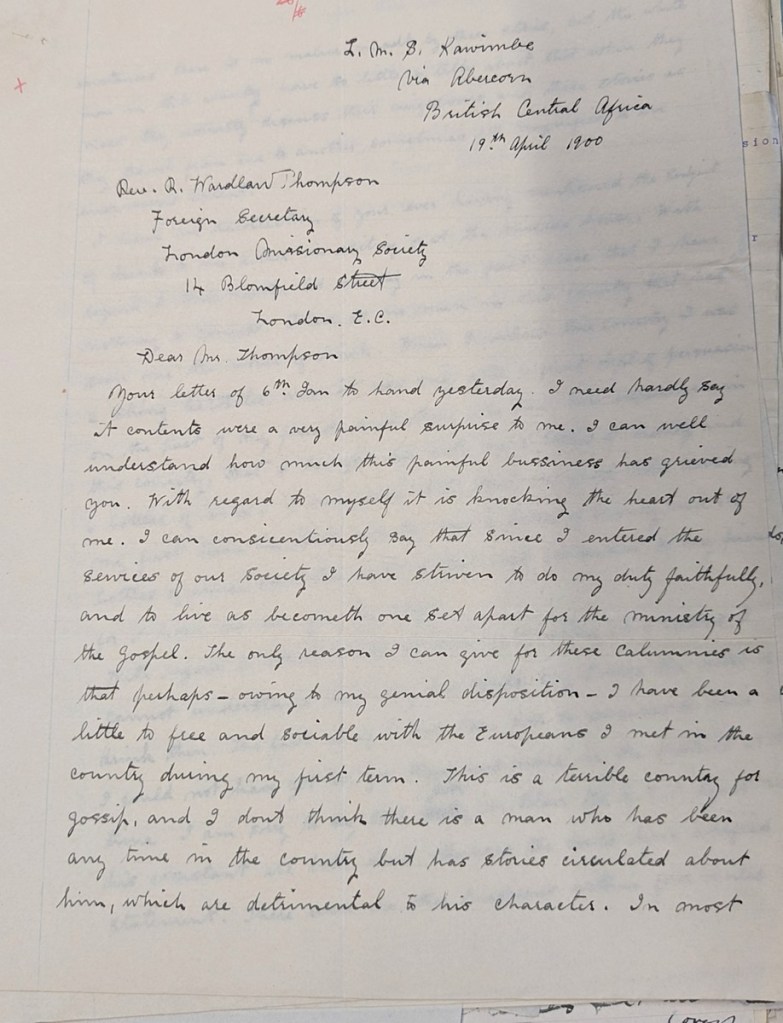 L. M. S. Kawimbe
via Abercorn
British Central Africa
19th April 1900
Rev. R. Wardlaw Thompson
Foreign Secretary
London Missionary Society
14 Blomfield Street
London. E.C.
Dear Mr. Thompson
Your letter of 6th Jan to hand yesterday. I need hardly say
it contents were a very painful surprise to me. I can well
understand how much this painful bussiness has grieved
you. With regard to myself it is knocking the heart out of
me. I can consicentiously say that since I entered the
services of our Society I have striven to do my duty faithfully,
and to live as becometh one set apart for the ministry of
the Gospel. The only reason I can give for these calumnies is
that perhaps - owing to my genial disposition - I have been a
little to free and sociable with the Europeans I met in the
country during my first term. This is a terrible country for
gossip, and I dont think there is a man who has been
any time in the country but has stories circulated about
him, which are detrimental to his character. In most
sion